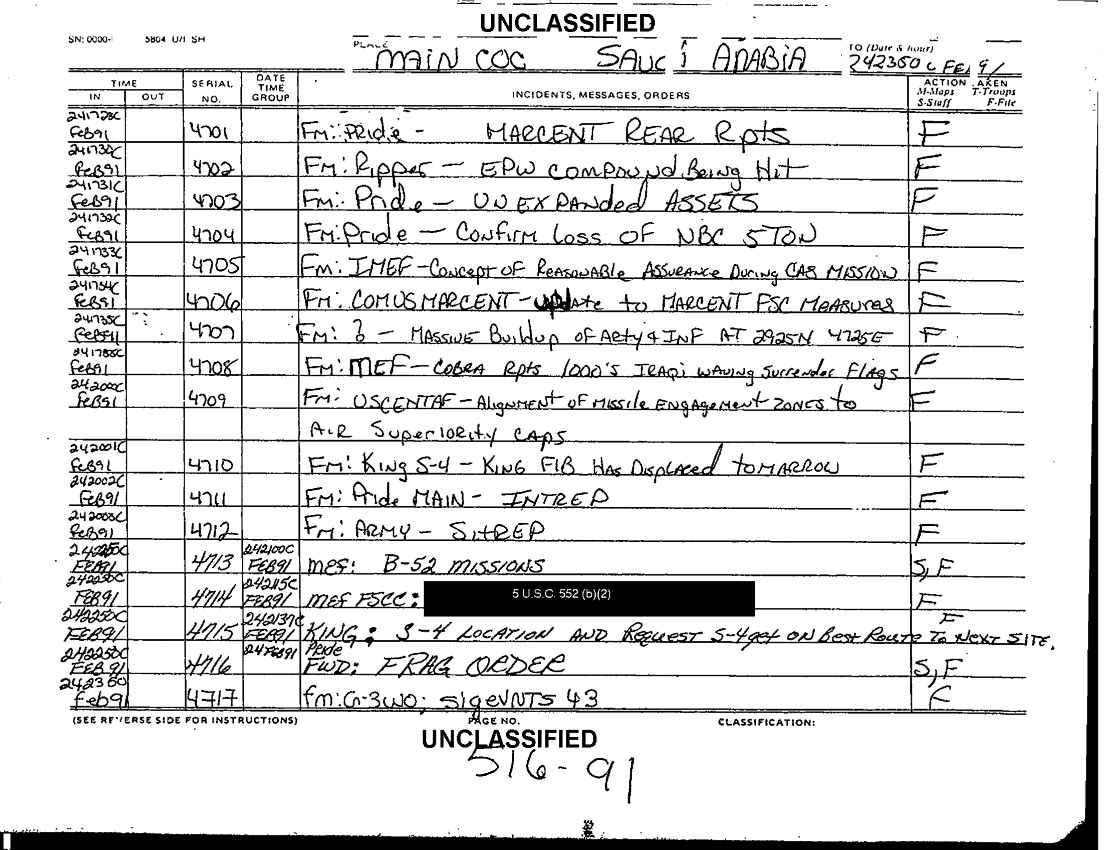 UNCLASSIFIED
SN: 0000- 5804 U/I SH
PLACE MAIN COC SAUDI ARABIA TO (Date & hour) 242350C FEB 91
TIME SERIAL NO. DATE TIME GROUP INCIDENTS, MESSAGES, ORDERS ACTION TAKEN
IN OUT M-Maps T-Troops S-Staff F-File
Feb91 4701 Fm: Pride - MARCENT REAR Rpts F
241730C Feb91 4702 Fm: Ripper - EPW COMPOUND Being Hit F
241731C Feb91 4703 Fm: Pride - UNEXPANDED ASSETS F
241732C Feb91 4704 Fm: Pride - Confirm Loss OF NBC 5 TON F
241733C Feb91 4705 Fm: IMEF - Concept OF Reasonable Assurance During CAS MISSION F
241734C Feb91 4706 Fm: COMUSMARCENT - update to MARCENT FSC Measures F
241735C Feb91 4707 Fm: ? - Massive Buildup of Arty & INF AT 2925N 4725E F
Feb91 4708 Fm: MEF - COBRA Rpts 1000's IRAQi waving Surrender Flags F
242000C Feb91 4709 Fm: USCENTAF - Alignment of Missile Engagement Zones to F
AIR Superiority CAPS
242001C Feb91 4710 Fm: King S-4 - King FIB Has Displaced toMARROW F
242002C Feb91 4711 Fm: Pride MAIN - INTREP F
242003C Feb91 4712 Fm: ARMY - SITREP F
242250C FEB91 4713 242100C FEB91 MEF: B-52 MISSIONS S,F
242250C FEB91 4714 242115C FEB91 MEF FSCC: 5 U.S.C. 552 (b)(2) F
242250C FEB91 4715 242137C FEB91 KING: S-4 LOCATION AND Request S-4 get ON Best Route To Next SITE. F
242250C FEB 91 4716 24 Feb91 Pride FWD: FRAG ORDER S,F
242350 Feb91 4717 fm: G-3WO; sigevNTS 43 F
(SEE REVERSE SIDE FOR INSTRUCTIONS) PAGE NO. CLASSIFICATION:
UNCLASSIFIED
516-91